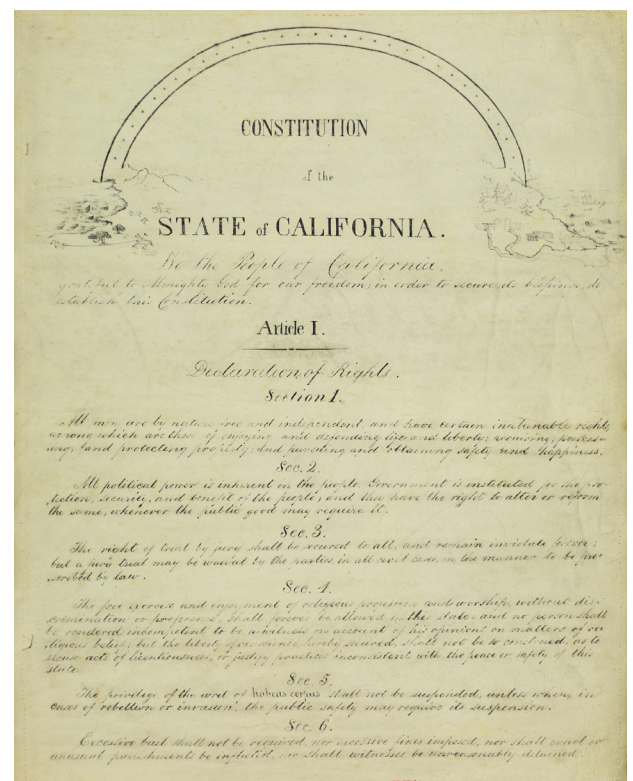 CONSTITUTION
of the
STATE of CALIFORNIA.
We the People of California,
grateful to Almighty God for our freedom, in order to secure its blessings, do
establish this Constitution.
Article I.
Declaration of Rights.
Section 1.
All men are by nature free and independent, and have certain inalienable rights,
among which are those of enjoying and defending life and liberty; acquiring, possess-
ing, and protecting property; and pursuing and obtaining safety and happiness.
Sec. 2.
All political power is inherent in the people. Government is instituted for the pro-
tection, security, and benefit of the people; and they have the right to alter or reform
the same, whenever the public good may require it.
Sec. 3.
The right of trial by jury shall be secured to all, and remain inviolate forever;
but a jury trial may be waived by the parties, in all civil cases, in the manner to be pre-
scribed by law.
Sec. 4.
The free exercise and enjoyment of religious profession and worship, without dis-
crimination or preference, shall forever be allowed in this state: and no person shall
be rendered incompetent to be a witness on account of his opinions on matters of re-
ligious belief; but the liberty of conscience, hereby secured, shall not be so construed, as to
excuse acts of licentiousness, or justify practices inconsistent with the peace or safety of this
state.
Sec. 5.
The privilege of the writ of habeas corpus shall not be suspended, unless when, in
cases of rebellion or invasion, the public safety may require its suspension.
Sec. 6.
Excessive bail shall not be required, nor excessive fines imposed, nor shall cruel or
unusual punishments be inflicted, nor shall witnesses be unreasonably detained.